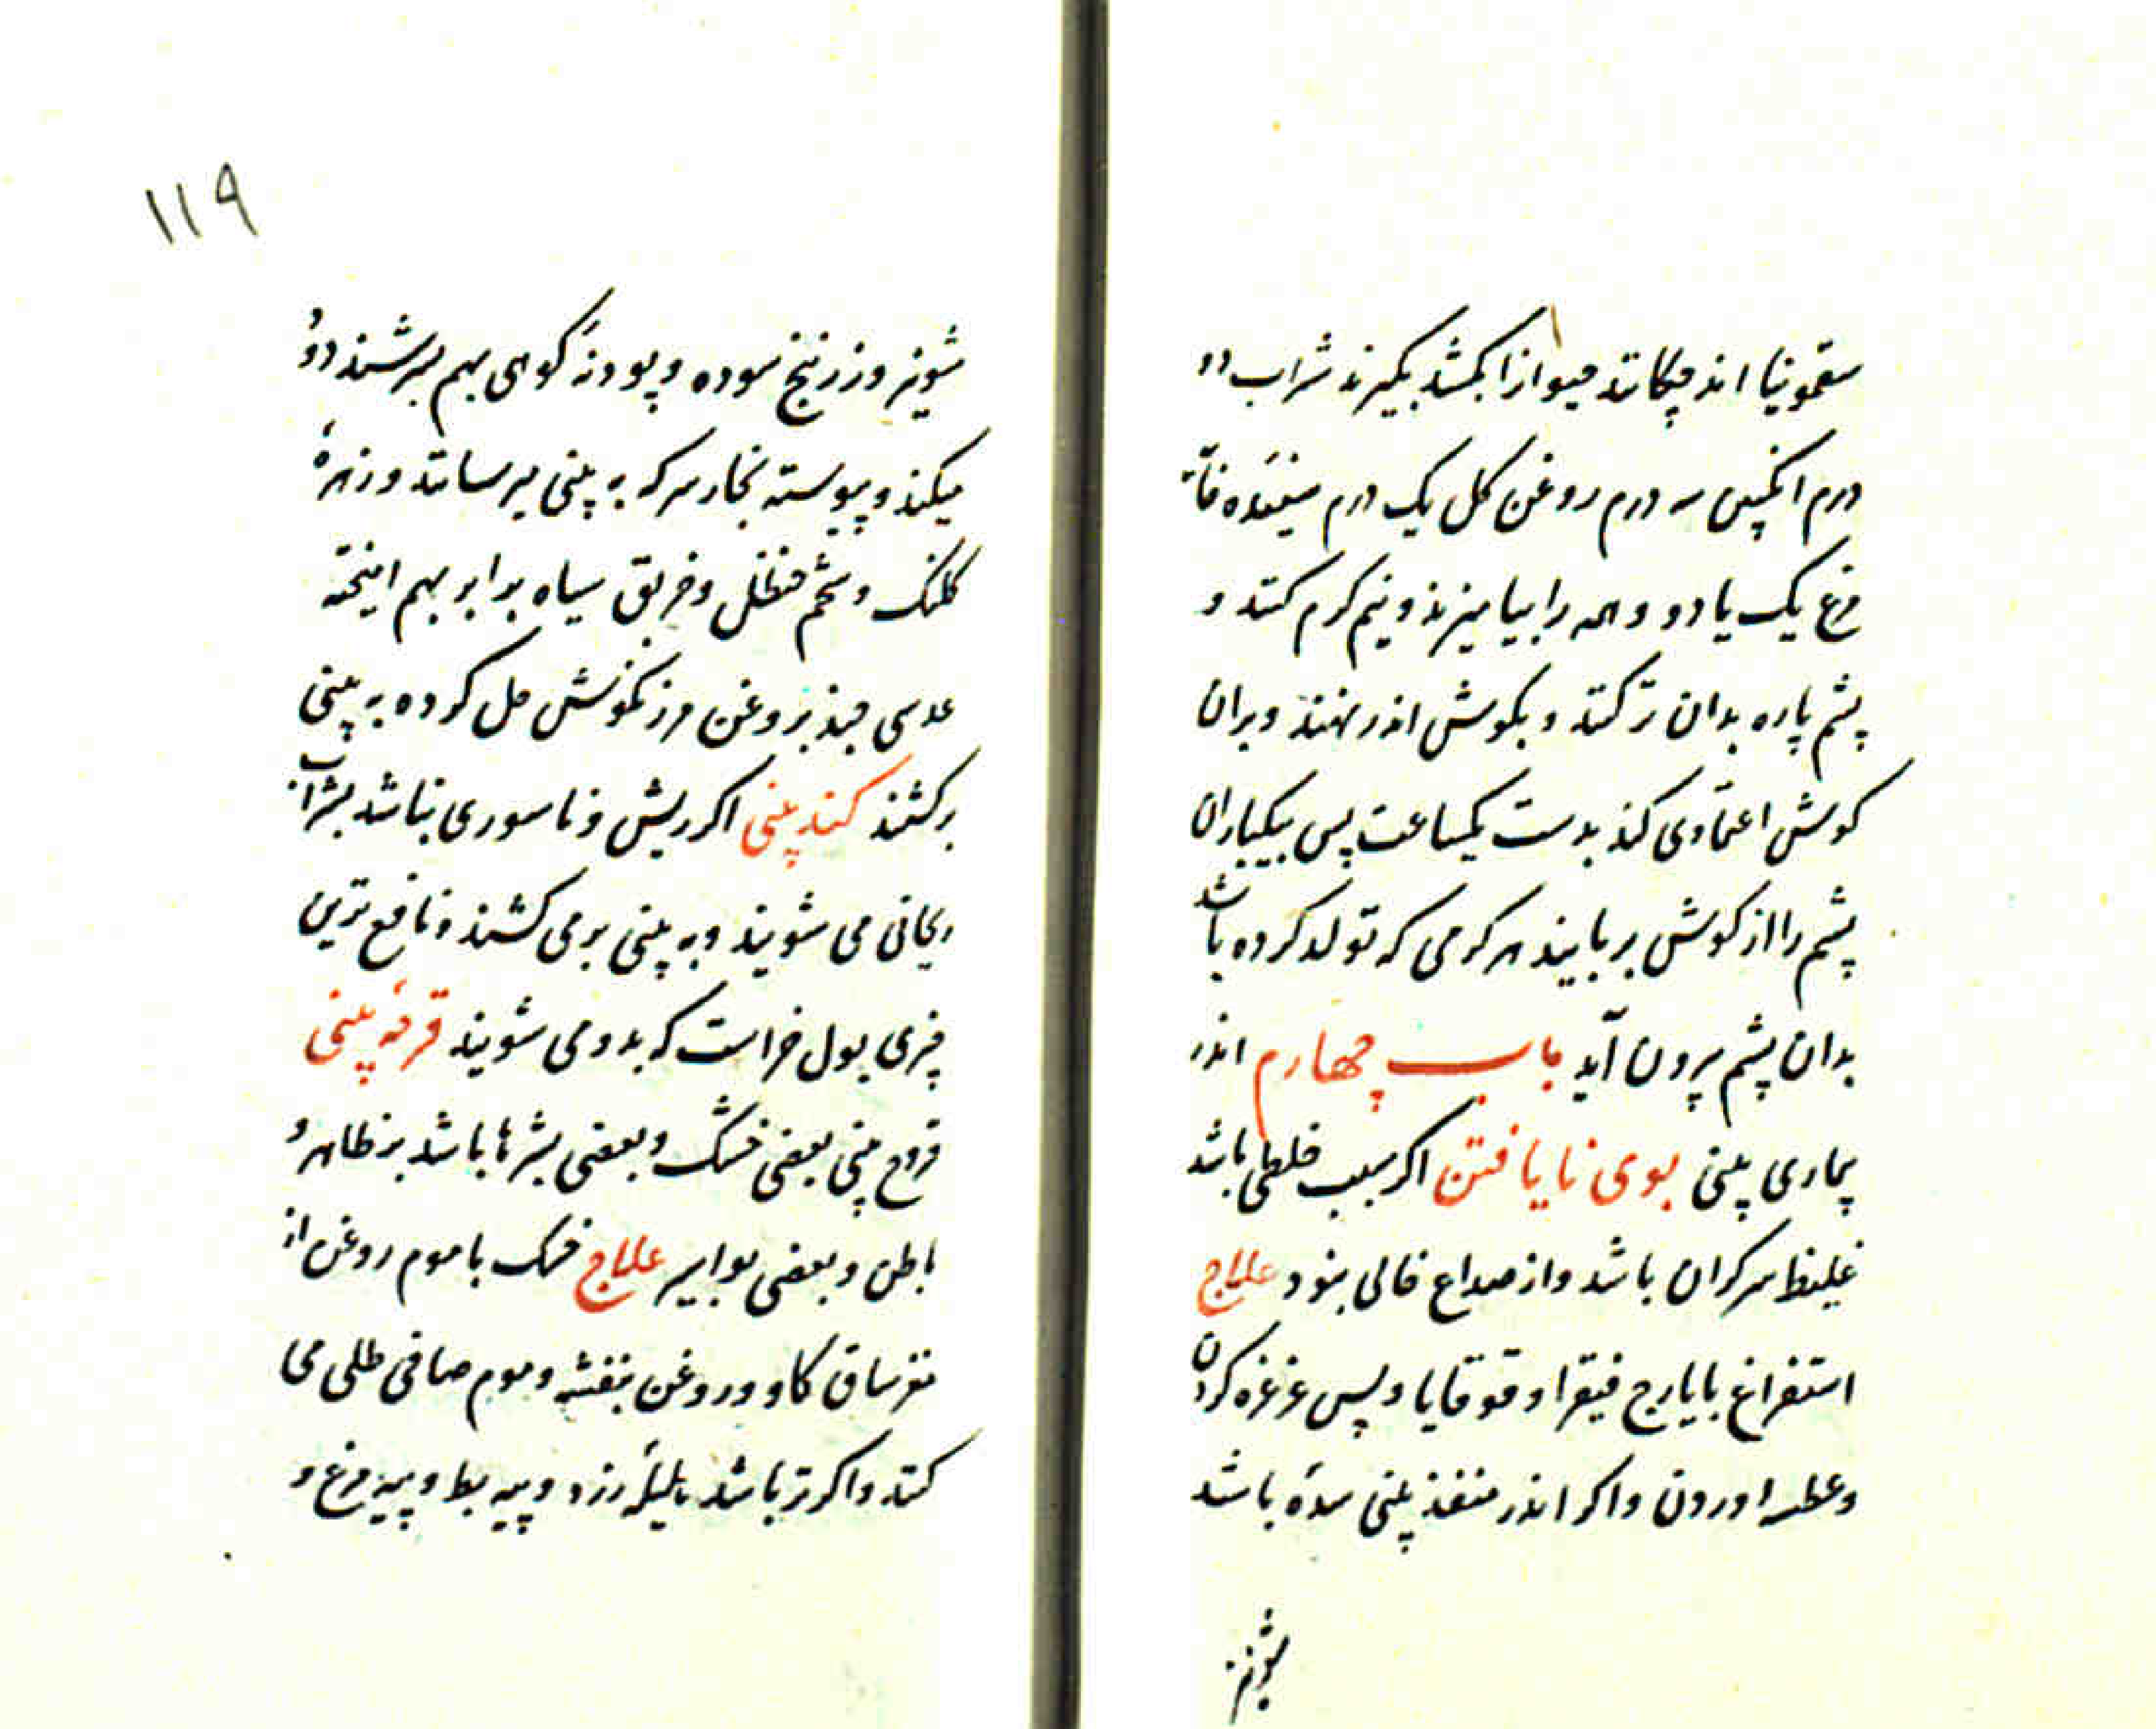 سقمونیا اندر چکانند حیوانرا بکشد بگیرند شراب دو
درم انگبین سه درم روغن کل یک درم سفیده خایه
مرغ یک یا دو و همه را بیامیزند و نیم کرم کنند و
پشم پاره بدان تر کنند و بکوش اندر نهند و بران
کوش اعتمادی کند بدست یکساعت پس بیکباران
پشم را از کوش بربایند هر کرمی که تولد کرده باشد
بدان پشم برون آید باب چهارم اندر
بیماری بینی بوی نایافتن اکر بسبب خلطی باشد
غلیظ سر کران باشد و از صداع خالی نبود علاج
استفراغ بایارج فیقرا و قوقایا و پس غرغره کردن
و عطسه اوردن و اکر اندر منفذ بینی سده باشد
شونیز
۱۱۹
شونیز و زرنیخ سوده و پودنهٔ کوهی بهم بسرشند دود
میکند و پیوسته بخار سرکه به بینی میرسانند و زهرهٔ
کلنک و شحم حنظل و خربق سیاه برابر بهم امیخته
عدسی چند بروغن مرزنکوش حل کرده به بینی
برکشند کند بینی اکر ریش و ناسوری نباشد بشراب
ریحانی می شویند و به بینی برمی کشند و نافع ترین
چیزی بول خراست که بدو می شویند قرحهٔ بینی
قروح بینی بعضی خشک و بعضی بشرها باشد بر ظاهر و
باطن و بعضی بواسیر علاج خشک با موم روغن از
مغز ساق کاو و روغن بنفشه و موم صافی طلی می
کنند و اکر تر باشد بلیلهٔ زرد و پیه بط و پیه مرغ و